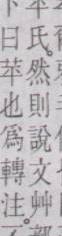 氏。然則說文艸部
下曰苹也爲轉注。